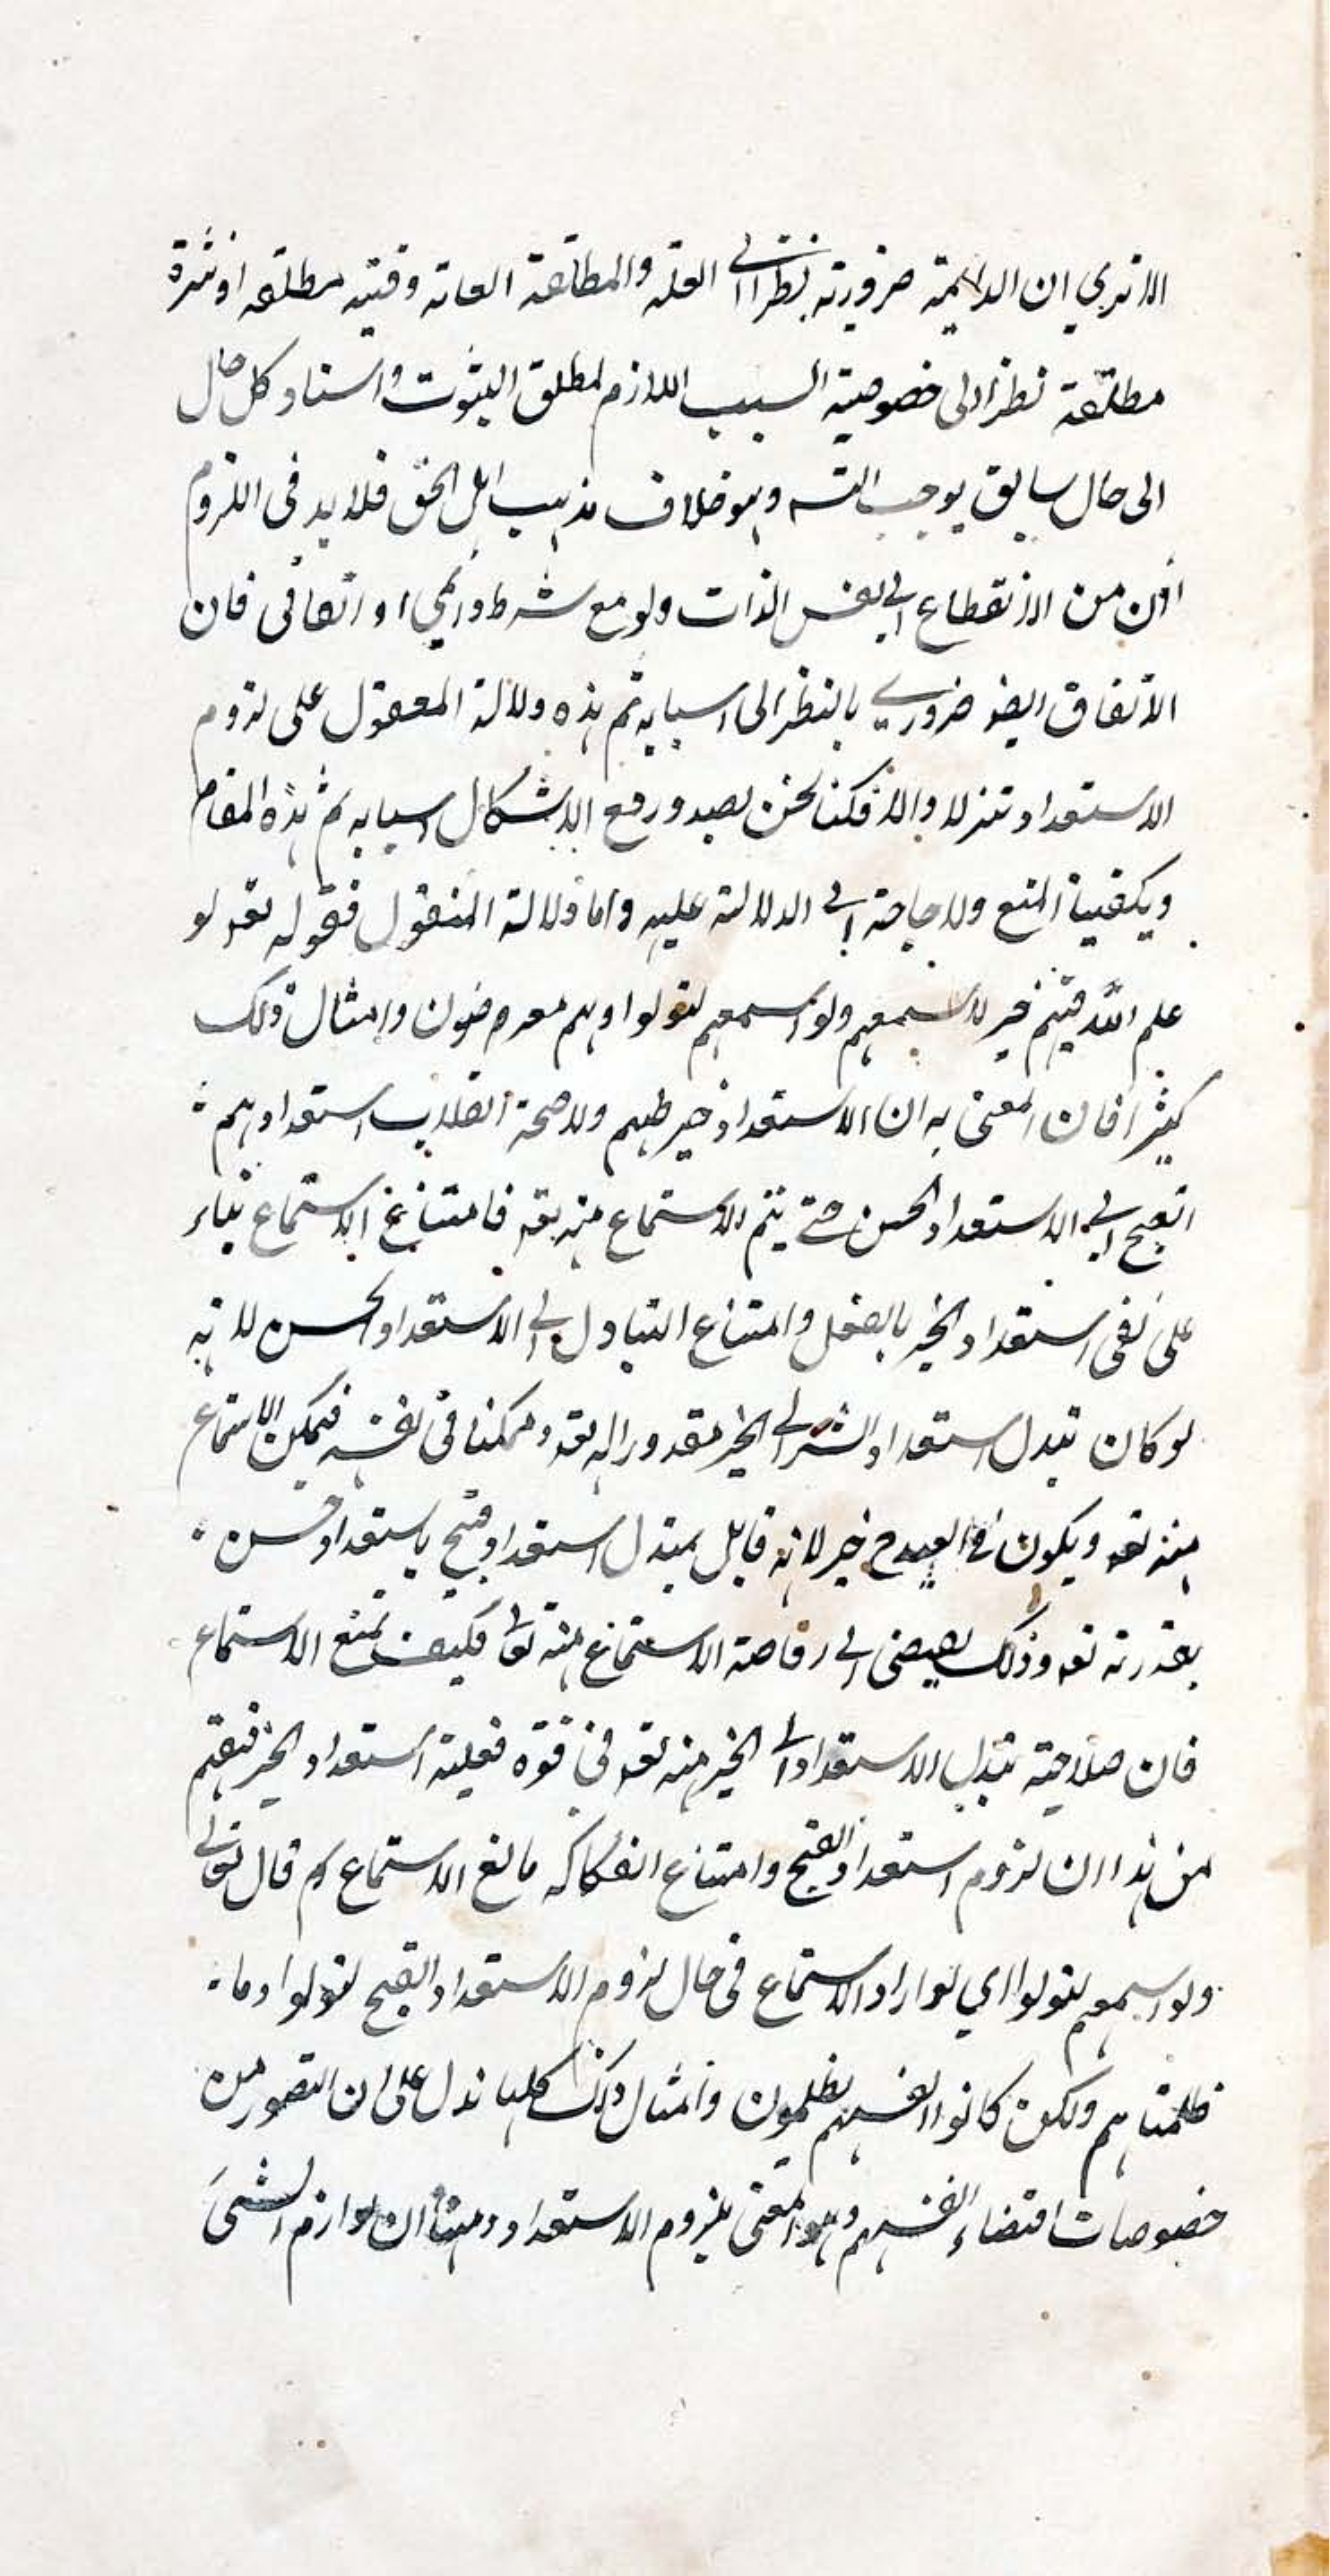 الا تري ان الدايمة ضرورية نظرا الى العلة والمطلقة العامة وقتية مطلقة او منتشرة
مطلقة نظرا الى خصوصية السبب اللازم لمطلق الثبوت واسناد كل حال
الى حال سابق يوجب التسـ وهو خلاف مذهب اهل الحق فلا بد فى اللزوم
اذن من الانقطاع الى نفس الذات ولو مع شرط دائمي او اتفاقى فان
الاتفاق ايضـ ضروري بالنظر الى اسبابه ثم هذه دلالة المعقول على لزوم
الاستعداد تنزلا والا فكنا نحن بصدد رفع الاشكال اسبابه ثم هذه المقام
ويكفينا المنع ولا حاجة الى الدلالة عليه واما دلالة المنقول فقوله تعـ لو
علم الله فيهم خيرا لاسمعهم ولو اسمعهم لتولوا وهم معرضون وامثال ذلك
كثيرا فان المعنى به ان الاستعداد خير طلبهم ولا صحة انقلاب استعدادهم
القبيح الى الاستعداد الحسن حتى يتم الاستماع منه تعـ فامتناع الاستماع بناء
على نفى استعداد الخير بالفعل وامتناع التبادل الى الاستعداد الحسن لانه
لو كان تبدل استعداد الشر الى الخير مقدورا له تعـ وممكنا فى نفسه فيمكن الاستماع
منه تعـ ويكون فى العبد ح خير لانه قابل بتبدل استعداد قبيح باستعداد حسن
بقدرته تعـ وذلك يفيضى الى رفاصة الاستماع منه تعالى فكيف يمتنع الاستماع
فان صلاحية تبدل الاستعداد الى الخير منه تعـ فى قوة فعلية استعداد الخير فيفهم
من هذا ان لزوم استعداد القبيح وامتناع انفكاكه مانع الاستماع ثم قال تعالى
ولو اسمعهم لتولوا اي لو اراد الاستماع فى حال لزوم الاستعداد القبيح لتولوا وما
ظلمناهم ولكن كانوا انفسهم يظلمون وامثال ذلك كلها تدل على ان القصور من
خصوصات اقتضاء انفسهم وهو المعنى بلزوم الاستعداد ومنها ان لوازم الشئ